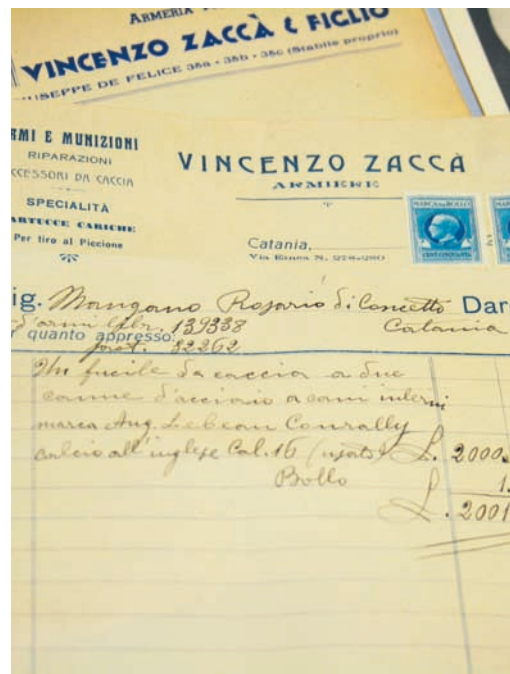 ARMERIA
VINCENZO ZACCÀ & FIGLIO
USEPPE DE FELICE 35a - 35b - 35c (Stabile proprio)
RMI E MUNIZIONI
RIPARAZIONI
CCESSORI DA CACCIA
SPECIALITÀ
ARTUCCE CARICHE
Per tiro al Piccione
VINCENZO ZACCÀ
ARMIERE
Catania,
Via Etnea N. 278-280
MARCA DA BOLLO
CENT. CINQUANTA
ig. Mangano Rosario di Concetto Dar
d'armi libr. 139338 Catania
quanto appresso:
port. 82262
Un fucile da caccia a due
canne d'acciaio a cani interni
marca Aug. Lebeau Conrally
calcio all'inglese Cal. 16 (usato) L. 2000.
Bollo 1.
L. 2001